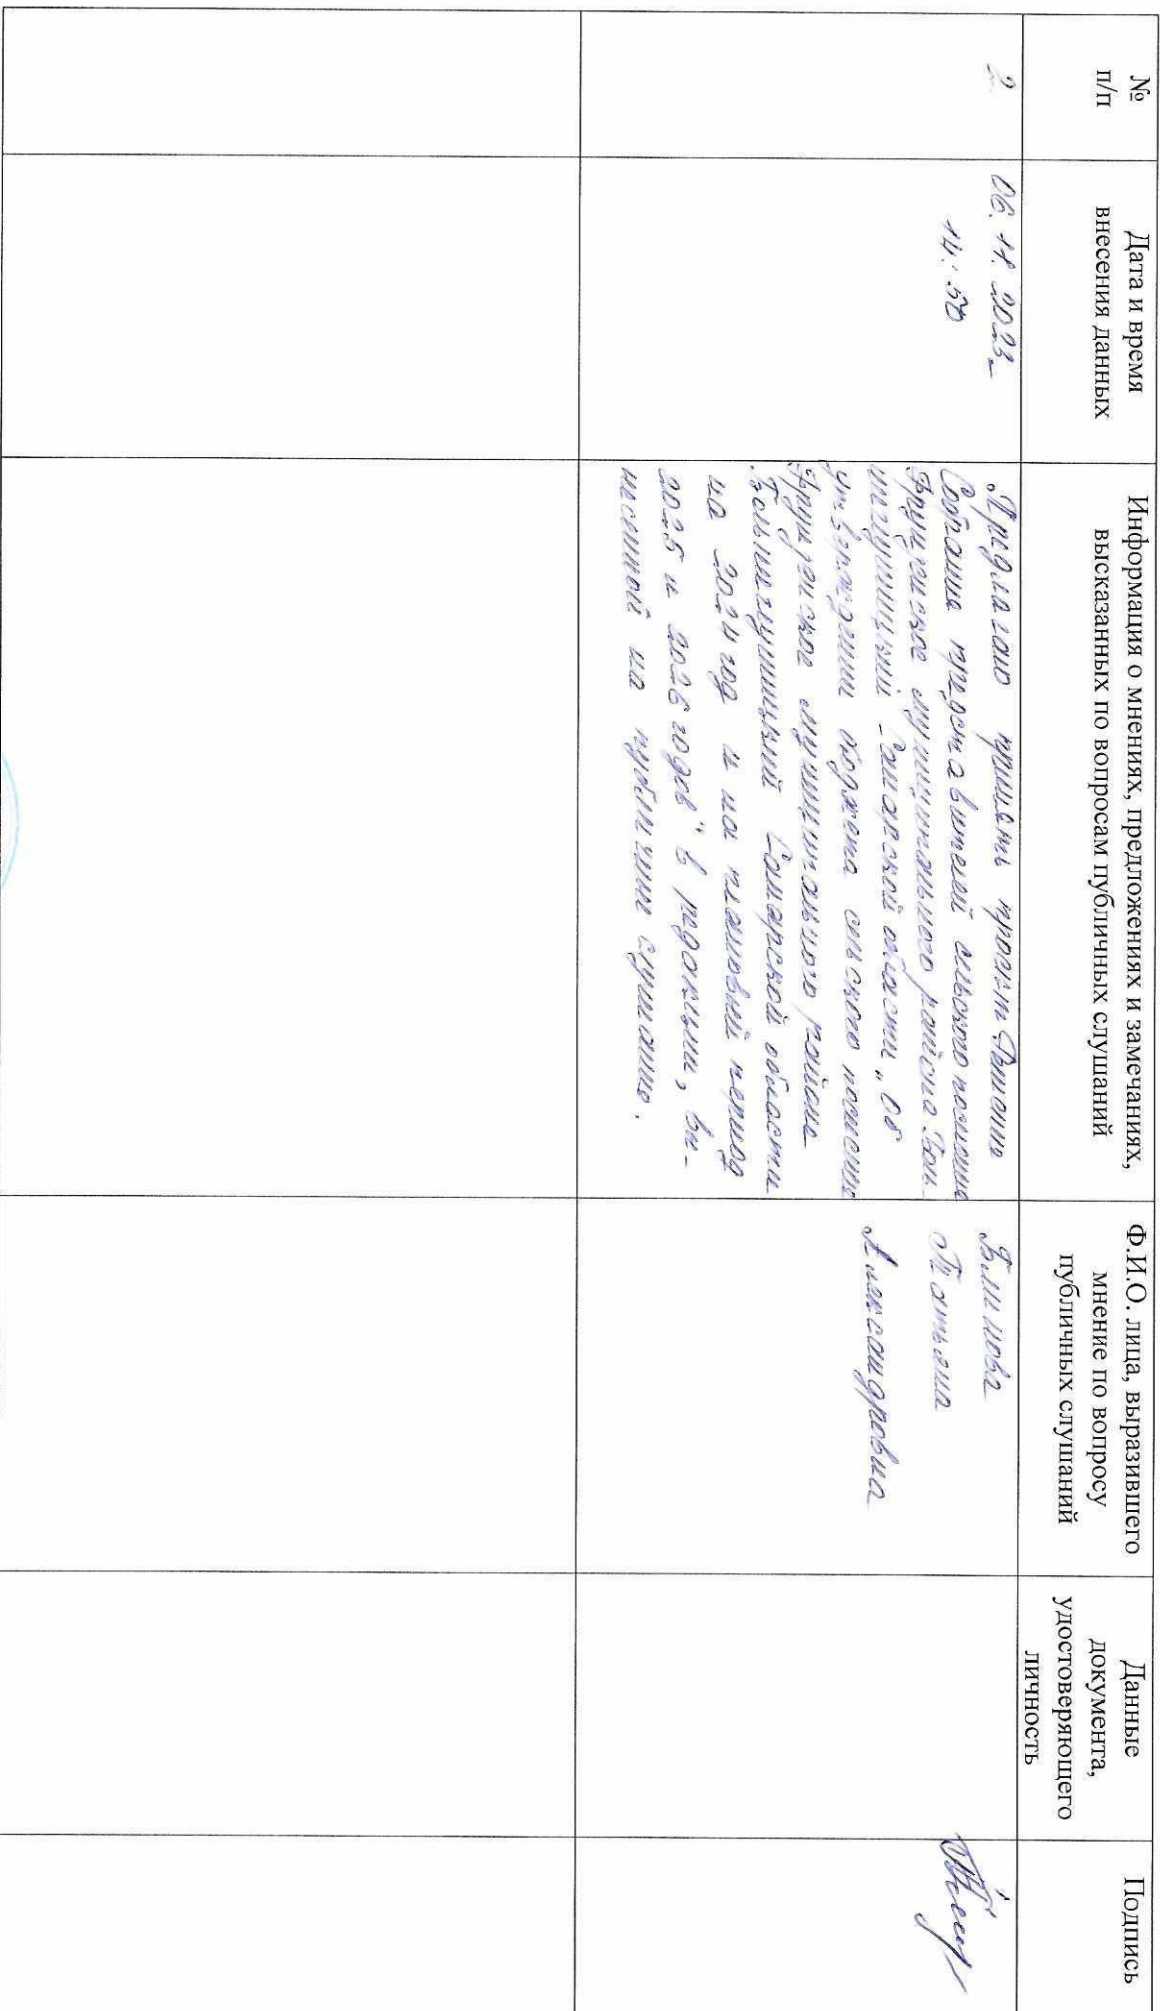 №
п/п
Дата и время
внесения данных
Информация о мнениях, предложениях и замечаниях,
высказанных по вопросам публичных слушаний
Ф.И.О. лица, выразившего
мнение по вопросу
публичных слушаний
Данные
документа,
удостоверяющего
личность
Подпись
2
06.11.2023
14:50
Предлагаю принять проект Решения
Собрания представителей сельского поселения
Фрунзенское муниципального района Боль-
шеглушицкий Самарской области „Об
утверждении бюджета сельского поселения
Фрунзенское муниципального района
Большеглушицкий Самарской области
на 2024 год и на плановый период
2025 и 2026 годов" в редакции, вы-
несенной на публичные слушания.
Блинова
Татьяна
Александровна